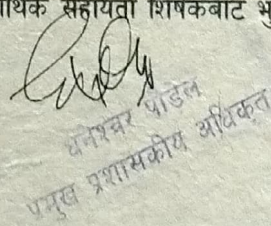 आर्थिक सहायता शिर्षकबाट भु
धनेश्वर पौडेल
प्रमुख प्रशासकीय अधिकृत